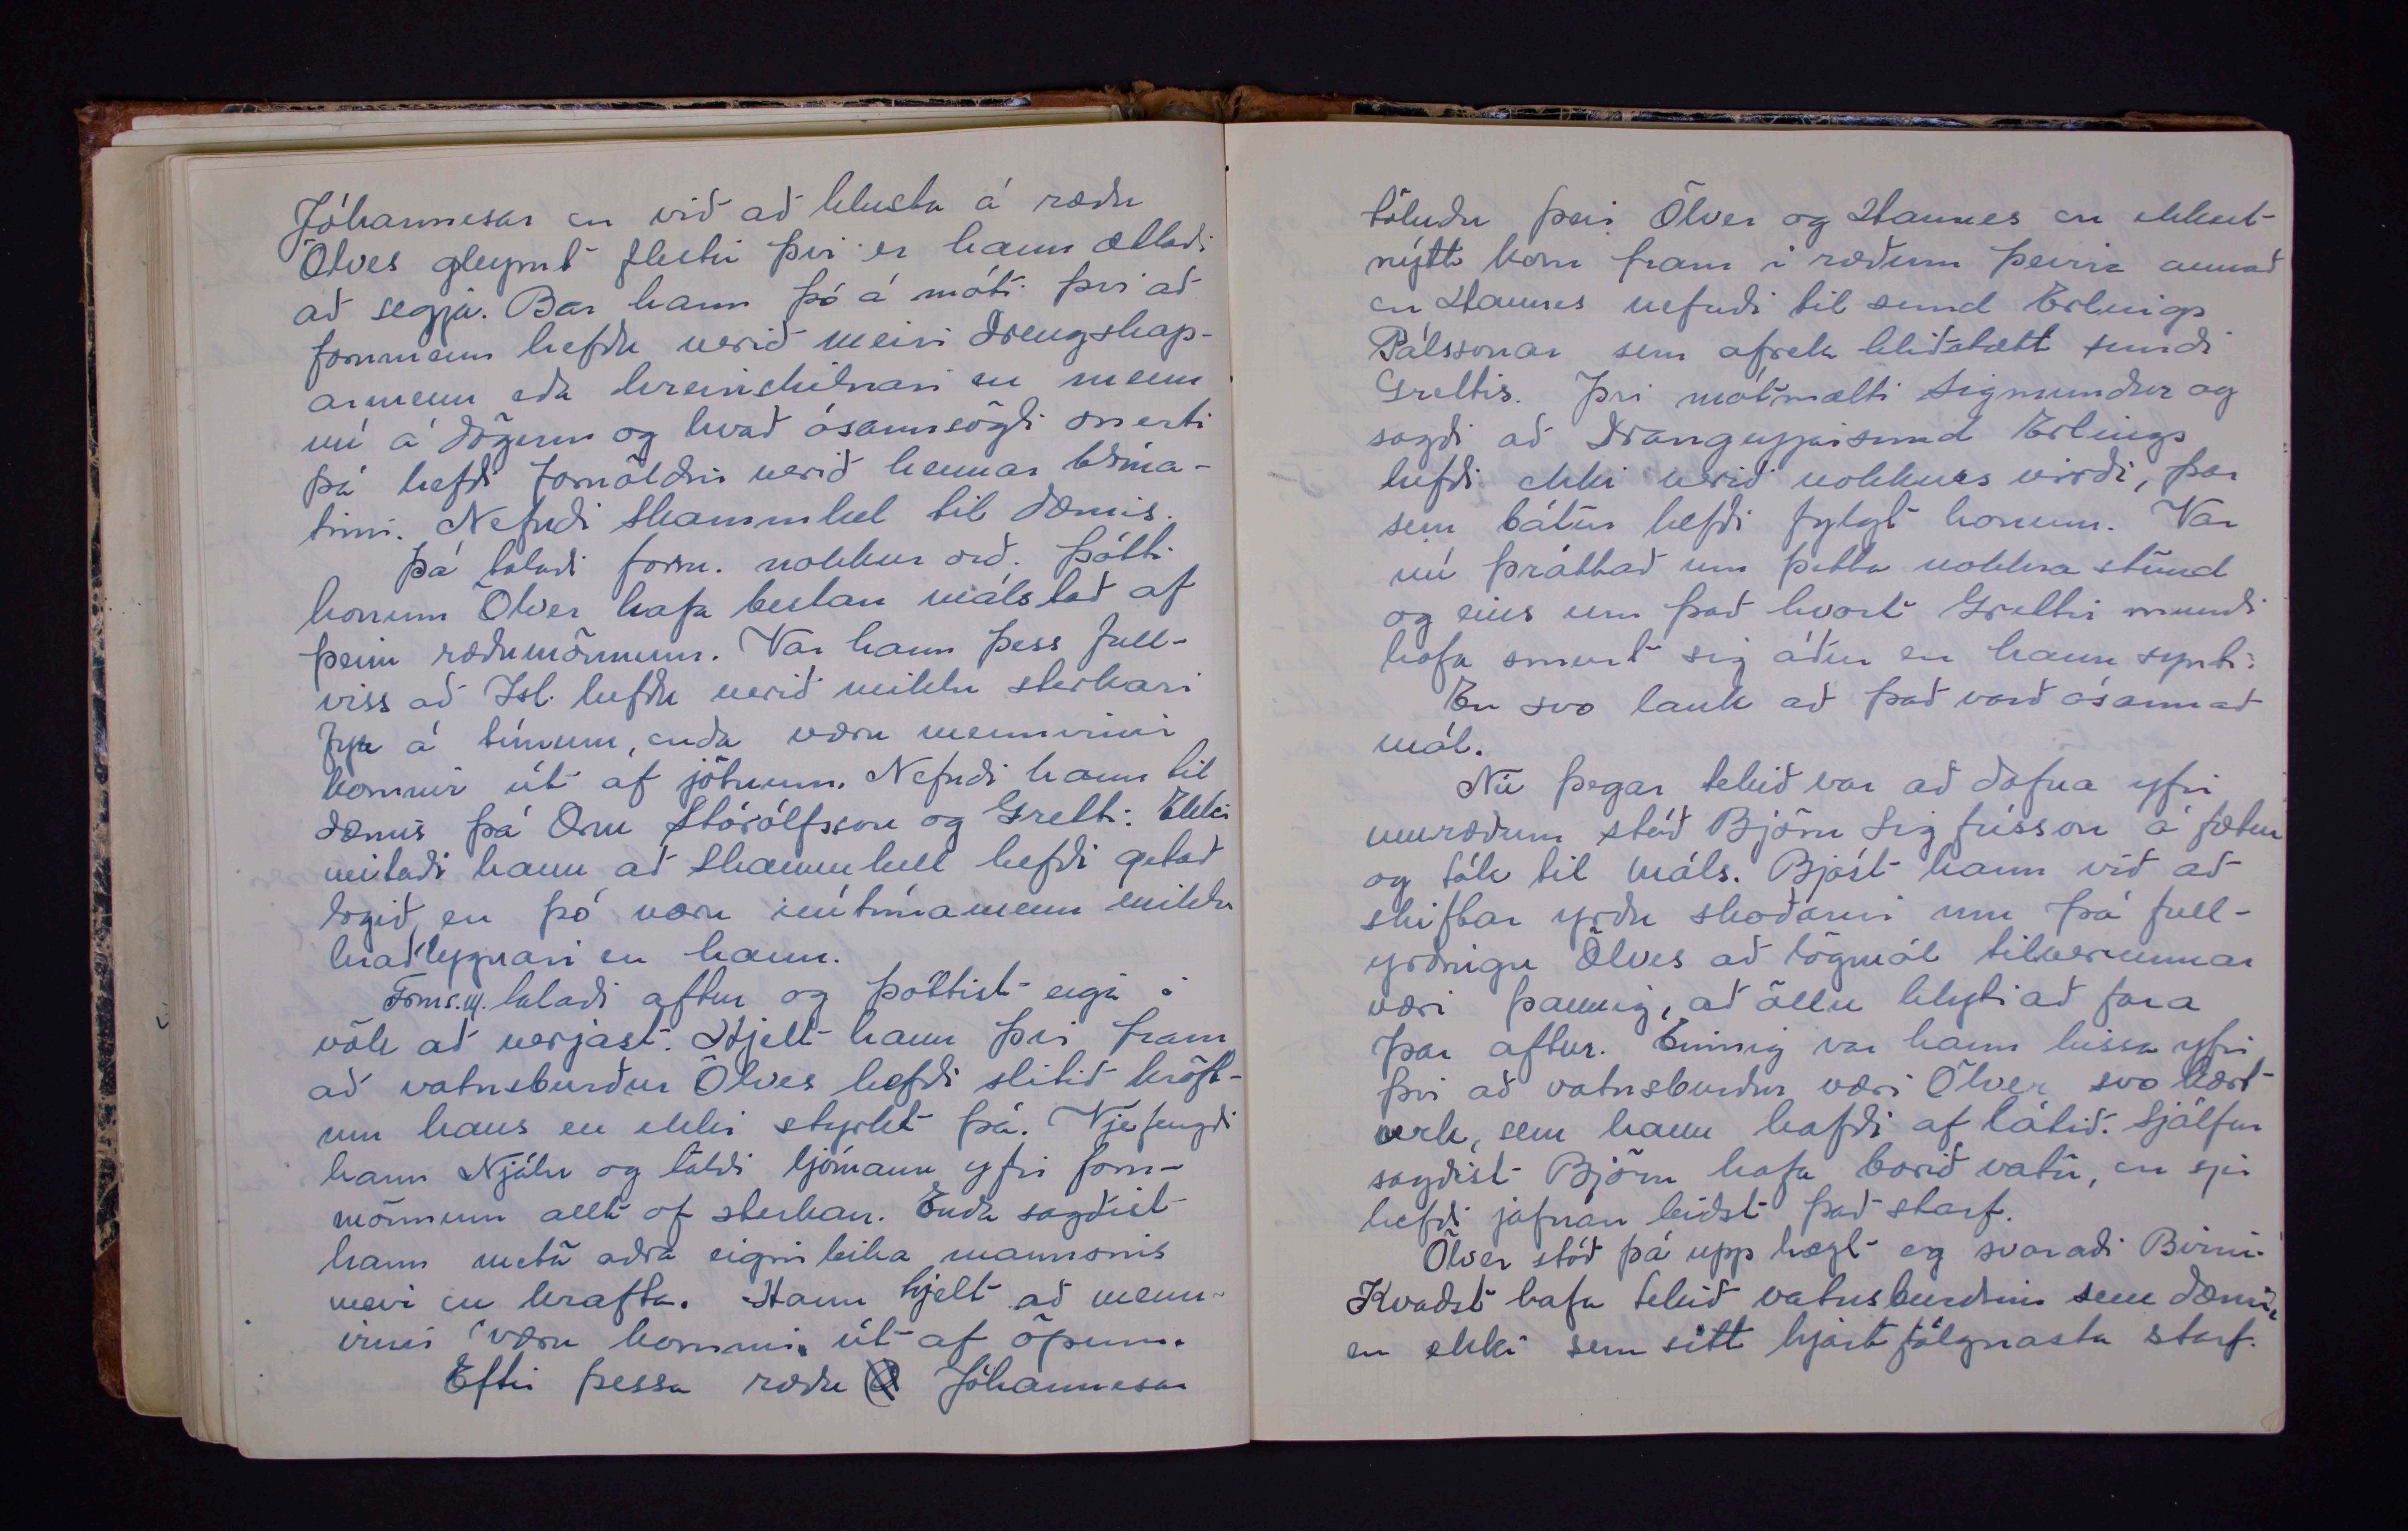 Jóhannesar en við að hlusta á ræðu
Ölves gleymt flestu því er hann ætlaði
að segja. Bar hann þó á móti því að
fornmenn hefðu verið meiri drengskap-
armenn eða hreinskilnari en menn
nú á dögum og hvað ósannsögli snerti
þá hefði fornöldin verið hennar blóma-
tími. Nefndi Skammkel til dæmis.
Þá talaði form. nokkur orð. Þótti
honum Ölver hafa bestan málstað af
þeim ræðumönnum. Var hann þess full-
viss að Isl. hefðu verið miklu sterkari
fyr á tímum, enda væru mennirnir
komnir út af jötnum. Nefndi hann til
dæmis þá Orm Stórólfsson og Gretti. Ekki
neitaði hann að Skammkell hefði getað
logið, en þó væru nútímamenn miklu
hraðlygnari en hann.
Forms.m. talaði aftur og þóttist eiga í
vök að verjast. Hjelt hann því fram
að vatnsburður Ölves hefði slitið kröft-
um hans en ekki styrkt þá. Vjefengdi
hann Njálu og taldi ljómann yfir forn-
mönnum allt of sterkan. Enda sagðist
hann meta aðra eiginleika mannsins
meir en krafta. Hann hjelt að menn-
irnir væru komnir út af öpum.
Eftir þessa ræðu Jóhannesar
töluðu þeir Ölver og Hannes en ekkert
nýtt kom fram í ræðum þeirra annað
en Hannes nefndi til sund Erlings
Pálssonar sem afrek hliðstætt sundi
Grettis. Því mótmælti Sigmundur og
sagði að Drangeyjarsund Erlings
hefði ekki verið nokkurs virði, þar
sem bátur hefði fylgt honum. Var
nú þráttað um þetta nokkra stund
og eins um það hvort Grettir mundi
hafa smurt sig áður en hann synti.
En svo lauk að það varð ósannað
mál.
Nú þegar tekið var að dofna yfir
umræðum stóð Björn Sigfússon á fætur
og tók til máls. Bjóst hann við að
skiftar yrðu skoðanir um þá full-
yrðingu Ölves að lögmál tilverunnar
væri þannig, að öllu hlyti að fara
þar aftur. Einnig var hann hissa yfir
því að vatnsburður væri Ölver svo kært
verk, sem hann hafði af látið. Sjálfur
sagðist Björn hafa borið vatn, en sjer
hefði jafnan leiðst það starf.
Ölver stóð þá upp hægt og svaraði Birni.
Kvaðst hafa tekið vatnsburðinn sem dæmi,
en ekki sem sitt hjartfólgnasta starf.